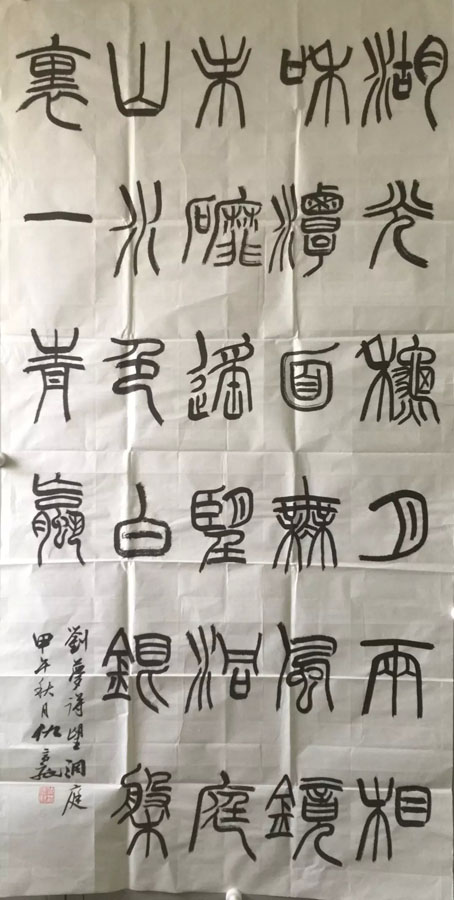 湖光穐月兩相
和潭面無風鏡
未䃺遙朢洞庭
山水色白銀盤
裏一青蠃
劉夢得望洞庭
甲午秋月